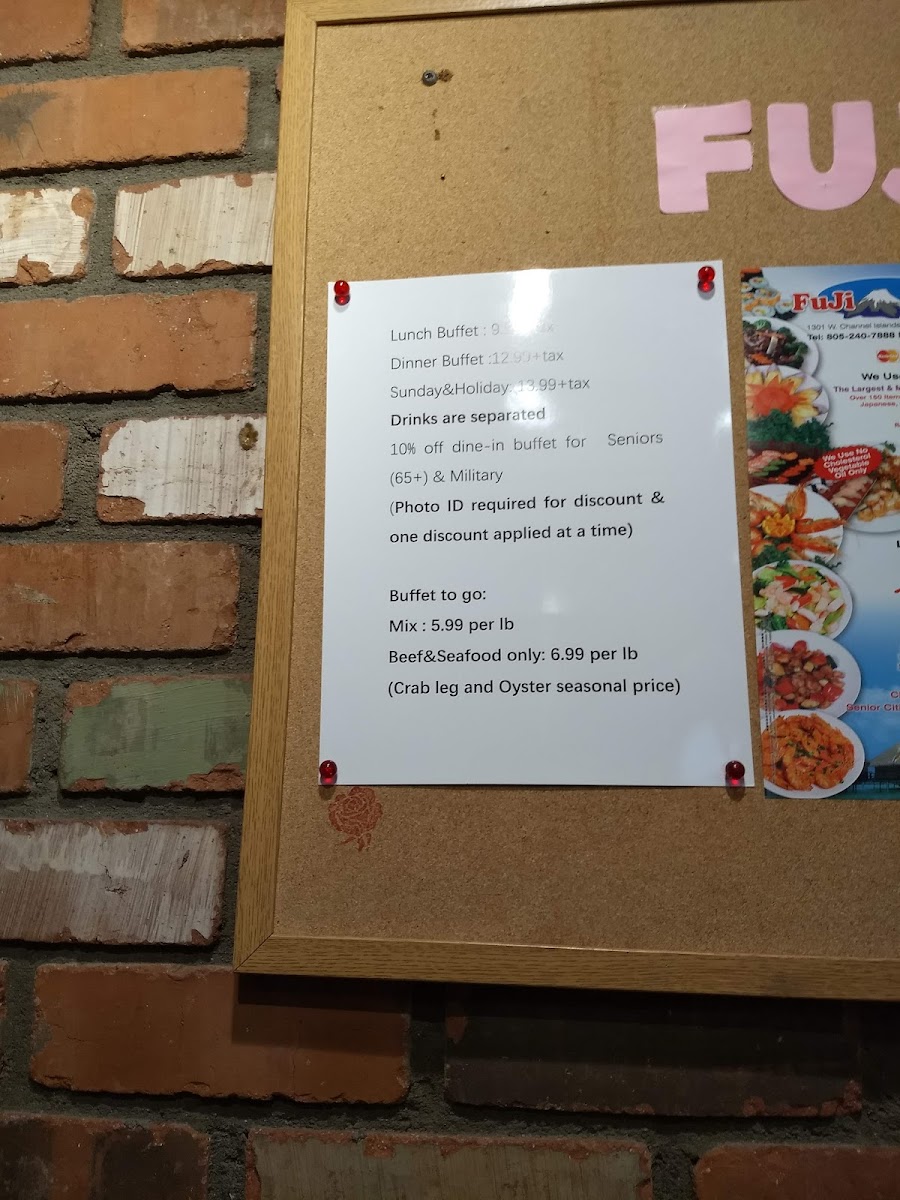 FUJ
Lunch Buffet : 9. tax
Dinner Buffet :12.99+tax
Sunday&Holiday: 13.99+tax
Drinks are separated
10% off dine-in buffet for Seniors
(65+) & Military
(Photo ID required for discount &
one discount applied at a time)
Buffet to go:
Mix : 5.99 per lb
Beef&Seafood only: 6.99 per lb
(Crab leg and Oyster seasonal price)
FuJi
1301 W. Channel Islands
Tel: 805-240-7888
We Us
The Largest &
Over 150 Item
Japanese,
We Use No
Cholesterol
Vegetable
Oil Only
Senior Cit